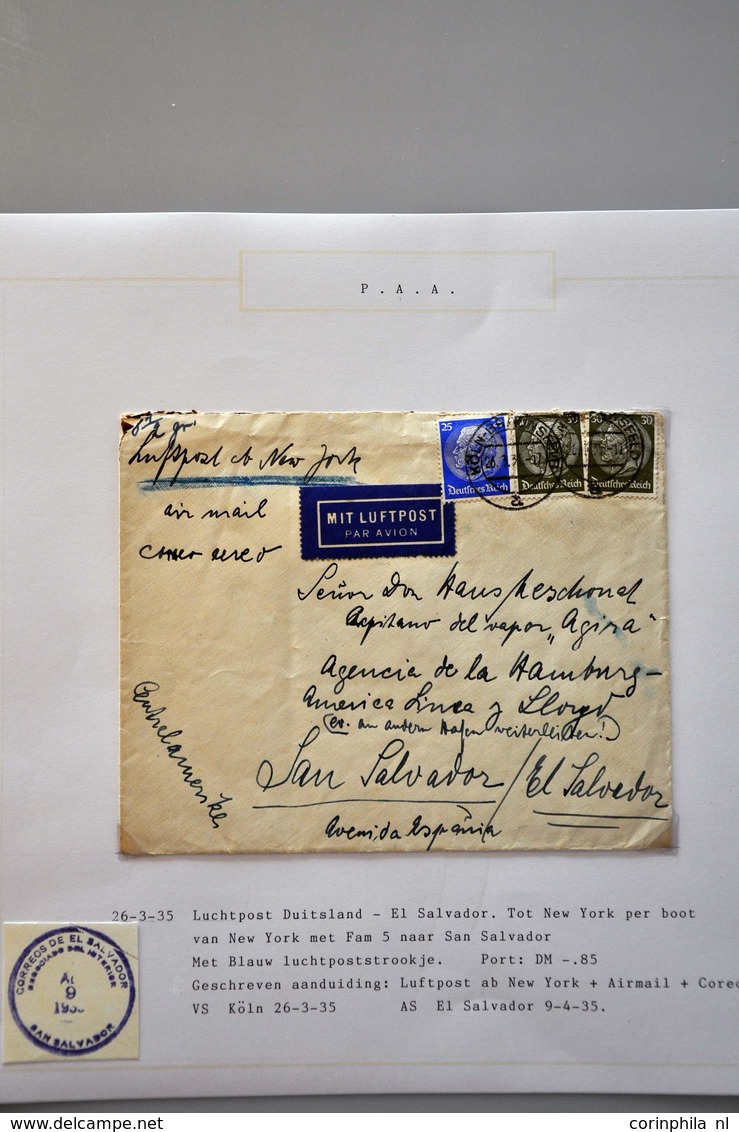 P.A.A.
5 1/2 gr.
Luftpost ab New York
air mail
correo aereo
MIT LUFTPOST
PAR AVION
25
30
30
Deutsches Reich
Deutsches Reich
Deutsches Reich
Señor Don Hans
Capitano del vapor „Agira“
Agencia de la Hamburg-
America Linea y Lloyd
(ev. an andern Hafen weiterleiten!)
San Salvador / El Salvador
Avenida España
Centralamerika
26-3-35 Luchtpost Duitsland - El Salvador. Tot New York per boot
van New York met Fam 5 naar San Salvador
Met Blauw luchtpoststrookje. Port: DM -.85
Geschreven aanduiding: Luftpost ab New York + Airmail + Coreo
VS Köln 26-3-35 AS El Salvador 9-4-35.
CORREOS DE EL SALVADOR
9
SAN SALVADOR
corinphila nl